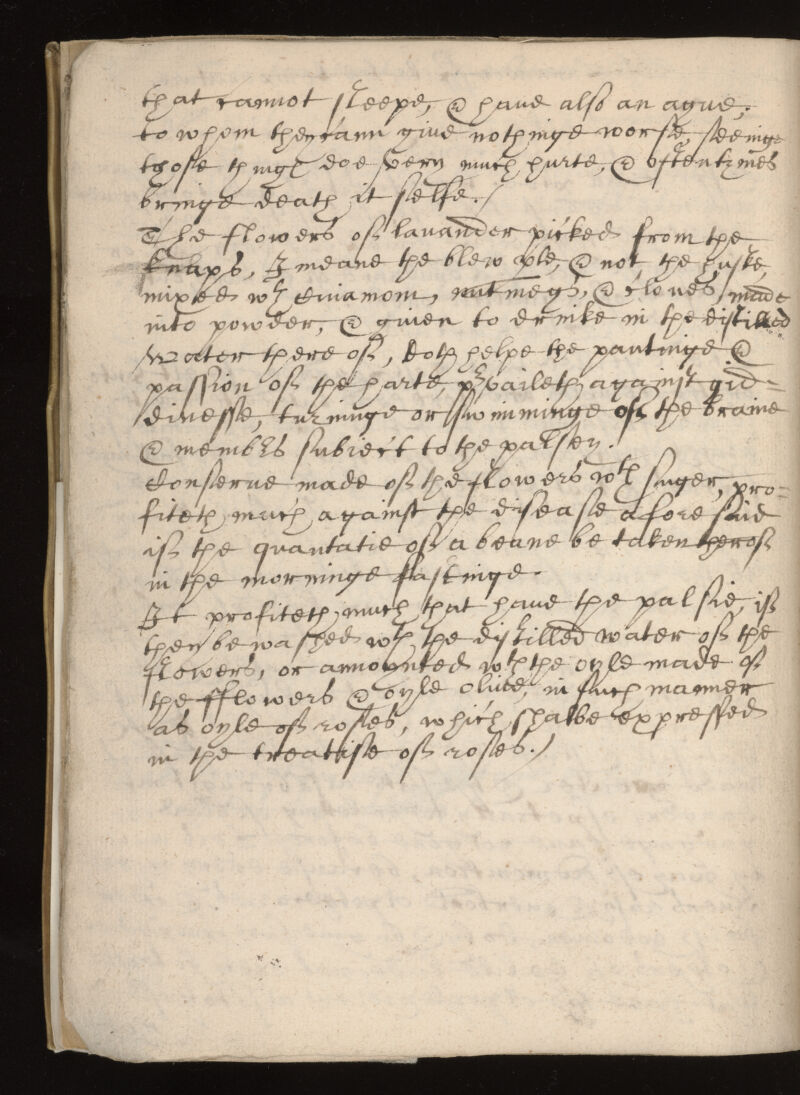 that cannot sleepe, & have also an ague,
to whom they cann give nothinge worse, seeinge
those things doe very much hurte, & oftentymes
bringe death it selfe./
The flowers of lauander picked from the
knaps, I meane the blew pte, & not the huske,
mixed wth Cinamom, nutmegs, & cloues, made
into powder, & giuen to drinke in the distilled
water there of, doth helpe the pantinge &
passion of the harte, pruaileth against gid=
dinesse, turninge or swimminge of the braine
& membrs subiect to the palsey.
Conserue made of the flowers wth suger, pro=
fiteth much against the disease aforesaid
if the quantatie of a beane be taken therof
in the morninge fastinge.
It profiteth much that have the palsie, if
they be washed wth the distilled water of the
flowers, or annoynted wth the oyle made of
the fflowers & oyle oliue, in such manner
as oyle of roses, which shalbe expressed
in the treatise of roses./